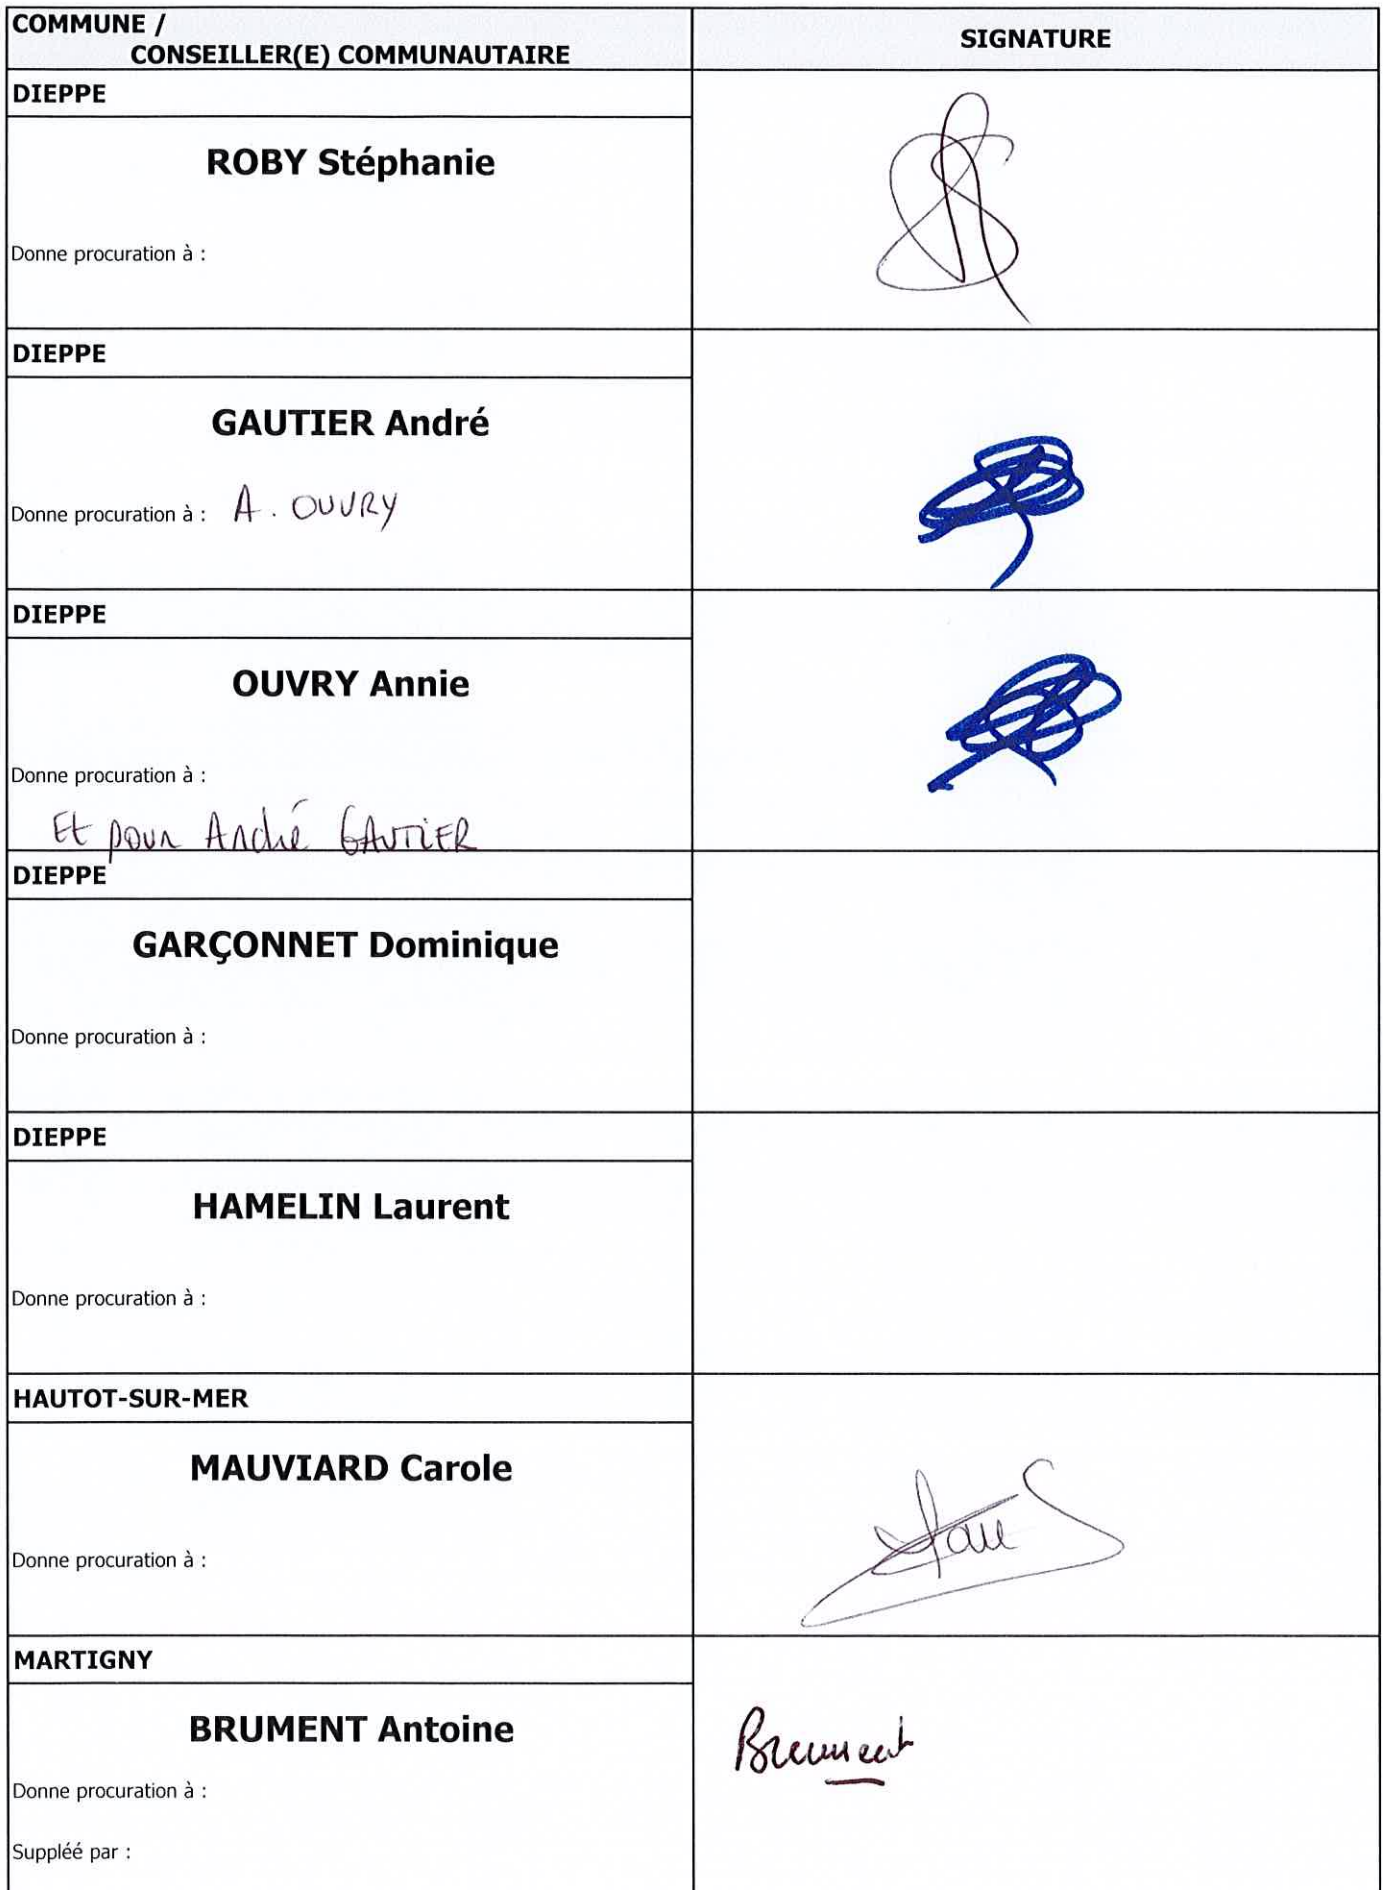 COMMUNE /
CONSEILLER(E) COMMUNAUTAIRE
SIGNATURE
DIEPPE
ROBY Stéphanie
Donne procuration à :
DIEPPE
GAUTIER André
Donne procuration à : A. OUVRY
DIEPPE
OUVRY Annie
Donne procuration à :
Et pour André GAUTIER
DIEPPE
GARÇONNET Dominique
Donne procuration à :
DIEPPE
HAMELIN Laurent
Donne procuration à :
HAUTOT-SUR-MER
MAUVIARD Carole
Donne procuration à :
MARTIGNY
BRUMENT Antoine
Brument
Donne procuration à :
Suppléé par :